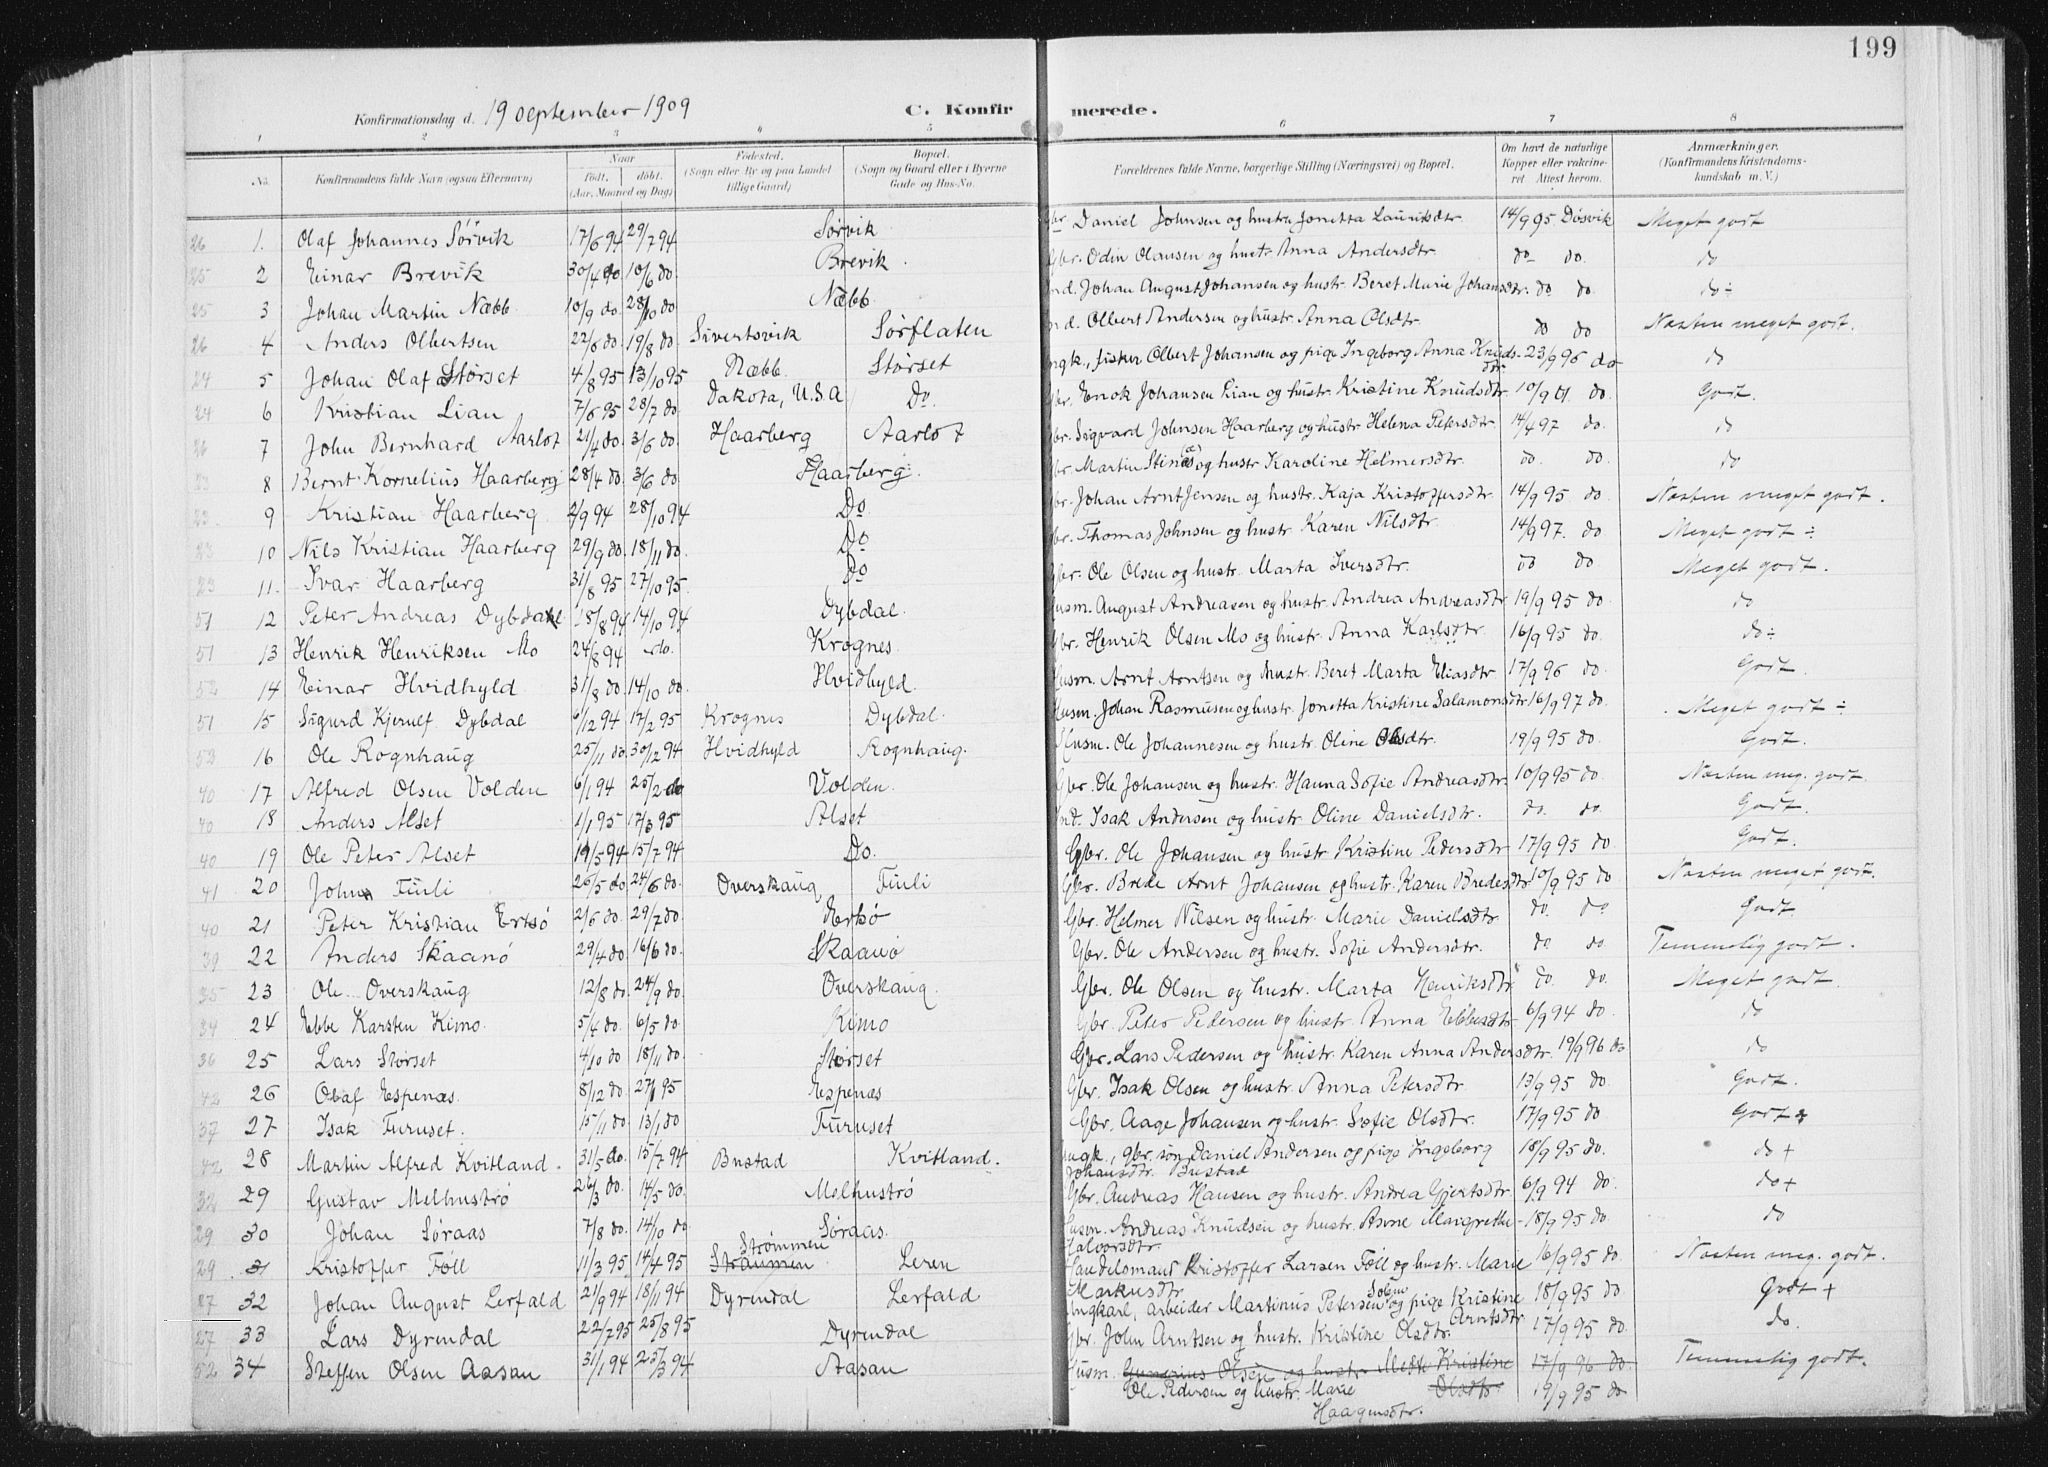 199
Konfirmationsdag d. 19 september 1909 C. Konfirmerede.
1 2 3 4 5 6 7 8
No. Konfirmandens fulde Navn (ogsaa Efternavn) Naar født. døbt. (Aar, Maaned og Dag) Fødested. (Sogn eller By og paa Landet tillige Gaard) Bopæl. (Sogn og Gaard eller i Byerne Gade og Hus-No. Forældrenes fulde Navne, borgerlige Stilling (Næringsvei) og Bopæl. Om havt de naturlige Kopper eller vakcineret. Attest herom. Anmærkninger. (Konfirmandens Kristendomskundskab m. V.)
26 1. Olaf Johannes Sørvik 17/6 94 29/7 94 Sørvik Gbr. Daniel Johnsen og hustru Jonetta Lauritsdtr. 14/9 95 Døsvik Meget godt
25 2 Einar Brevik 30/4 do 10/6 do Brevik. Gbr. Odin Olausen og hustr. Anna Andersdtr. do do. do
25 3 Johan Martin Næbb. 10/9 do. 28/10 do Næbb Ind. Johan August Johansen og hustr. Beret Marie Johansdtr. do do do ÷
26 4 Anders Olbertsen 22/6 do. 19/8 do Sivertsvik Sørflaten Ind. Olbert Andersen og hustr. Anna Olsdtr. do do Næsten meget godt.
24 5 Johan Olaf Størset 4/8 95 13/10 95 Næbb. Størset Ungk., fisker Olbert Johansen og pige Ingeborg Anna Knudsdtr. 23/9 96 do do
24 6 Kristian Lian 7/6 95 28/7 do Dakota, U.S.A Do. Gbr. Enok Johansen Lian og hustr. Kristine Knudsdtr. 10/9 01. do. Godt.
26 7 John Bernhard Aarlot 21/4 do. 3/6 do. Haarberg Aarlot Gbr. Sigvard Johnsen Haarberg og hustr Helena Petersdtr. 14/4 97 do. do
23 8 Bernt Kornelius Haarberg 28/4 do. 3/6 do. Haarberg. Gbr. Martin og hustr Karoline Helmersdtr. do. do. do
23. 9 Kristian Haarberg. 2/9 94 28/10 94 Do. Gbr. Johan Arnt Jensen og hustr. Kaja Kristoffersdtr. 14/9 95 do. Næsten meget godt.
23 10 Nils Kristian Haarberg 29/9 do. 18/11 do. Do Gbr. Thomas Johnsen og hustr. Karen Nilsdtr. 14/9 97. do Meget godt ÷
23 11. Ivar Haarberg 31/8 95 27/10 95. Do Gbr. Ole Olsen og hustr. Marta Iversdtr. do do. Meget godt.
51 12 Peter Andreas Dybdahl 18/8 94 14/10 94 Dybdal. Husm. August Andreasen og hustr. Andrea Andreasdtr. 19/9 95 do. do
51 13 Henrik Henriksen Mo 24/8 94 do. Krognes. Gbr. Henrik Olsen Mo og hustr. Anna Karlsdtr. 16/9 95 do. do ÷
52 14 Einar Hvidhyld 31/8 do. 14/10 do. Hvidhyld. Husm. Arnt Arntsen og hustr. Beret Marta Eliasdtr. 17/9 96 do. Godt.
51 15 Sigurd Kjerulf Dybdal 6/12 94 17/2 95 Krognes Dybdal. Husm. Johan Rasmusen og hustr. Jonetta Kristine Salamonsdtr 16/9 97 do. Meget godt ÷
53 16 Ole Rognhaug 25/11 do. 30/12 94 Hvidhyld Rognhaug. Husm. Ole Johannesen og hustr. Oline Olsdtr. 19/9 95 do. Godt.
40 17 Alfred Olsen Volden 6/1 94 25/2 do Volden. Gbr. Ole Johansen og hustr. Hanna Sofie Andreasdtr. 10/9 95 do. Næsten meg. godt.
40 18 Anders Alset 1/1 95 17/3 95 Alset Ind. Isak Andersen og hustr. Oline Danielsdtr. do. do. Godt.
40 19 Ole Peter Alset 19/5 94 15/7 94 Do. Gbr. Ole Johansen og hustr. Kristine Pedersdtr. 17/9 95 do. Godt.
41 20 John Tiuli 26/5 do 24/6 do. Overskaug Tiuli Gbr. Brede Arnt Johansen og hustr. Karen Bredesdtr 10/9 95 do. Næsten meget godt.
40 21 Peter Kristian Ertsø 2/6 do. 29/7 do. Ertsø Gbr. Helmer Nilsen og hustr. Marie Danielsdtr. do. do Godt.
39 22 Anders Skaanø 29/4 do. 16/6 do. Skaanø Gbr. Ole Andersen og hustr. Sofie Andersdtr. do. do. Temmelig godt.
35 23 Ole Overskaug 12/8 do. 24/9 do. Overskaug. Gbr. Ole Olsen og hustr. Marta Henriksdtr do. do. Meget godt.
34 24 Ebbe Karsten Kimo. 5/4 do. 6/5 do. Kimo Gbr. Peter Pedersen og hustr. Anna Ebbesdtr 6/9 94 do. do
36 25 Lars Størset 4/10 do 18/11 do. Størset Gbr. Lars Pedersen og hustr. Karen Anna Andersdtr. 19/9 96 do do
42 26 Olaf Espenæs. 8/12 do. 27/1 95 Espenæs Gbr. Isak Olsen og hustr. Anna Petersdtr. 13/9 95 do. Godt.
37 27 Isak Furuset. 15/11 do. 13/1 do Furuset Gbr. Aage Johansen og hustr. Sofie Olsdtr. 17/9 95 do Godt +
42 28 Martin Alfred Kvitland. 31/5 do. 15/7 94 Bustad Kvitland. Ungk., gbr.søn Daniel Andersen og pige Ingeborg Johansdtr. Bustad 18/9 95 do. do +
32 29 Gustav Melhustrø 26/3 do. 14/5 do. Melhustrø Gbr. Andreas Hansen og hustr. Andrea Gjertsdtr 6/9 94 do. do +
29 30 Johan Søraas 7/8 do. 14/10 do Søraas. Husm. Andreas Knudsen og hustr. Anne Margrethe Halvorsdtr. 18/9 95 do. do
29 31 Kristoffer Føll 11/3 95 14/4 95 Strømmen Straumen Leren Handelsmand Kristoffer Larsen Føll og hustr. Marie Markusdtr 16/9 95 do. Næsten meg. godt.
27 32 Johan August Lerfald 21/9 94 18/11 94 Dyrendal Lerfald Ungkarl, arbeider Martinus Petersen Solem og pige Kristine Arntsdtr 18/9 95 do Godt +
27 33 Lars Dyrendal 22/7 95 25/8 95 Dyrendal Gbr. John Arntsen og hustr. Kristine Olsdtr. 17/9 95 do. do.
52 34 Steffen Olsen Aasan 31/1 94 25/3 94 Aasan Husm. Gunerius Olsen og hustr. Mette Kristine Olsdtr 17/9 96 do. Temmelig godt.
Ole Pedersen og hustr. Marie Haagensdtr. 19/9 95 do